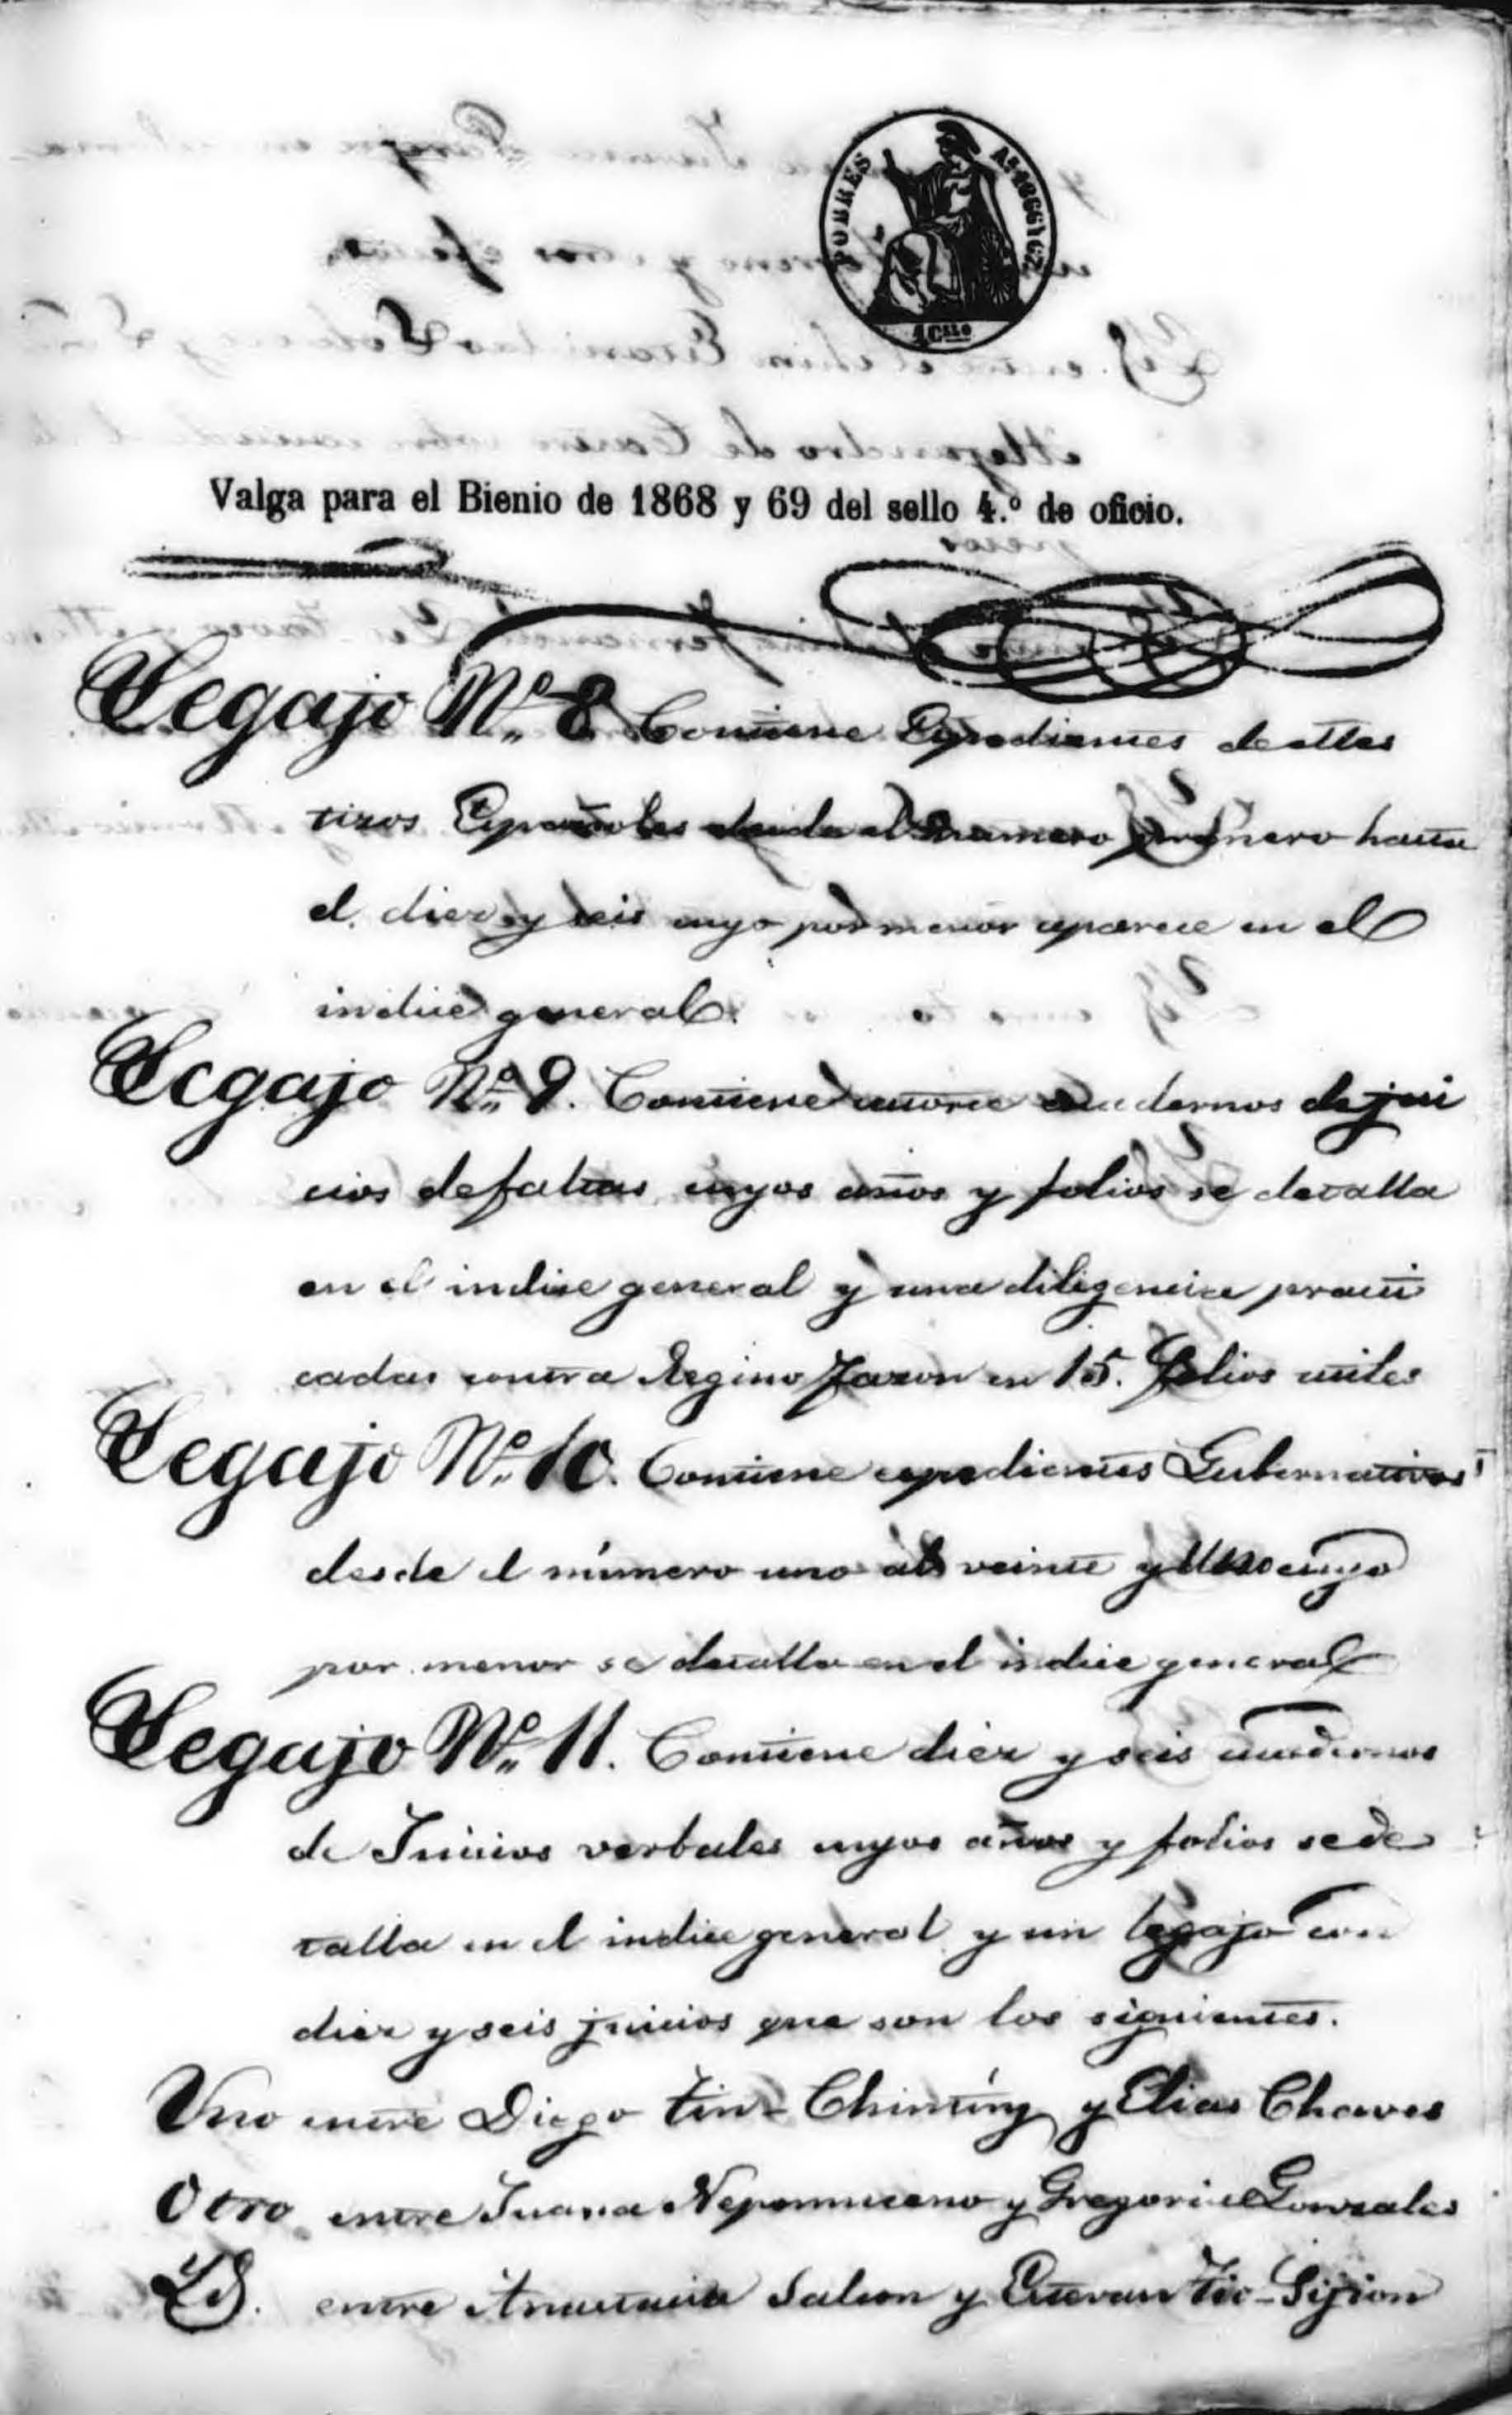 POBRES
Aˢ 1866 y 67
4 Cˢ
Valga para el Bienio de 1868 y 69 del sello 4.º de oficio.
Legajo Nº 8 Contiene Espedientes de Mes
tizos Españoles desde el numero primero hasta
el diez y seis cuyo pormenor aparece en el
indice general.
Legajo Nº 9. Contiene catorce cuadernos de jui
cios de faltas cuyos años y folios se detalla
en el indice general y una diligencia practi
cadas contra Regino Jason en 15. folios utiles
Legajo Nº 10. Contiene espedientes Gubernativos
desde el número uno al veinte y Uno cuyo
por menor se detalla en el indice general
Legajo Nº 11. Contiene diez y seis cuadernos
de Juicios verbales cuyos años y folios se de
talla en el indice general y un legajo con
diez y seis juicios que son los siguientes.
Uno entre Diego Tin-Chimting y Elias Chaves
Otro entre Juana Nepomuceno y Gregorio Gonzales
Yd. entre Anastacia Salson y Estevan Tic-Sijion